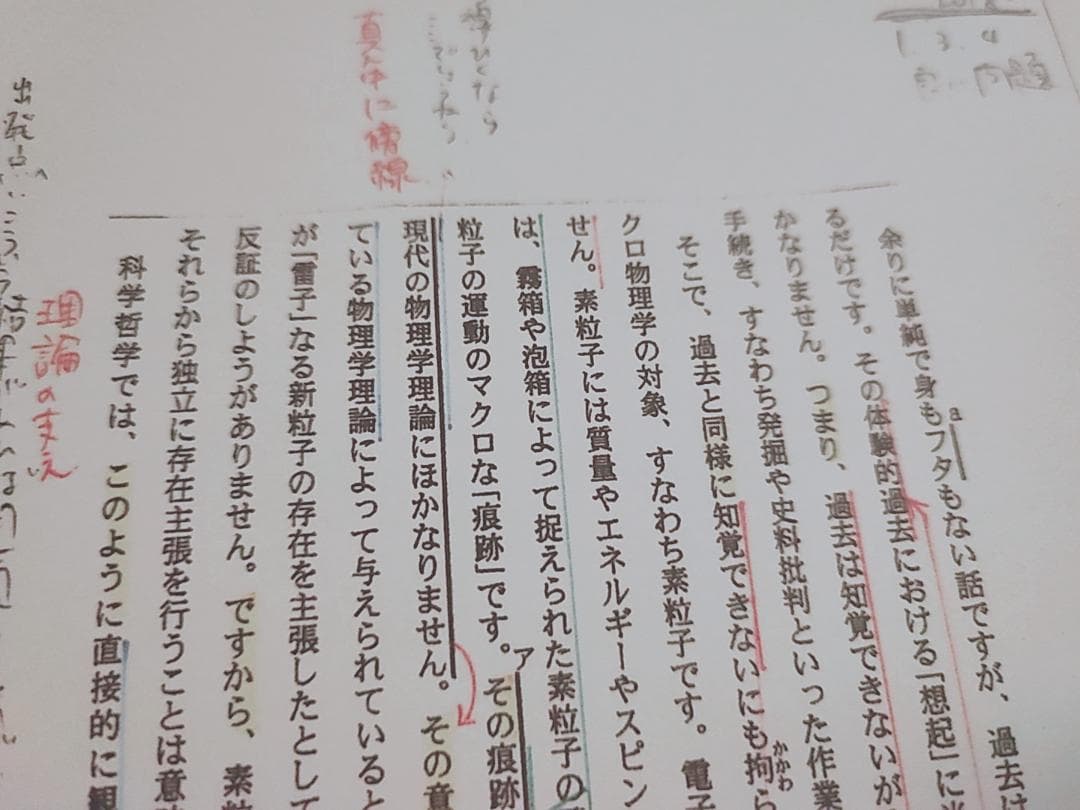 1.3.4
問題
真ん中に傍線
理論の支え
出発点
余りに単純で身もフタもない話ですが、過去
a
るだけです。その体験的過去における「想起」に
かなりません。つまり、過去は知覚できないが
手続き、すなわち発掘や史料批判といった作業
そこで、過去と同様に知覚できないにも拘ら
かかわ
クロ物理学の対象、すなわち素粒子です。電子
せん。素粒子には質量やエネルギーやスピン
は、霧箱や泡箱によって捉えられた素粒子の
粒子の運動のマクロな「痕跡」です。その痕跡
ア
現代の物理学理論にほかなりません。その意
ている物理学理論によって与えられていると
が「雷子」なる新粒子の存在を主張したとして
反証のしようがありません。ですから、素粒
それらから独立に存在主張を行うことは意
科学哲学では、このように直接的に観